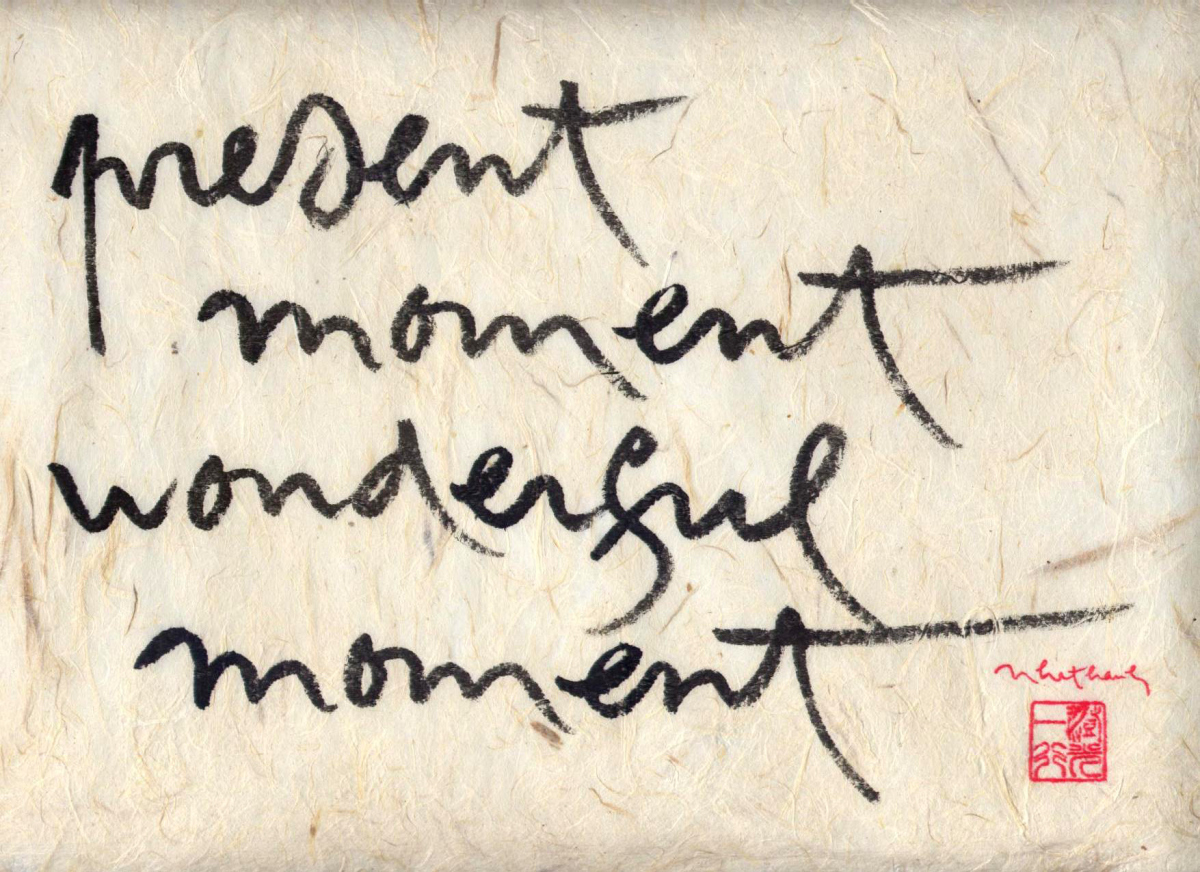 present
moment
wonderful
moment
nhathanh
一行